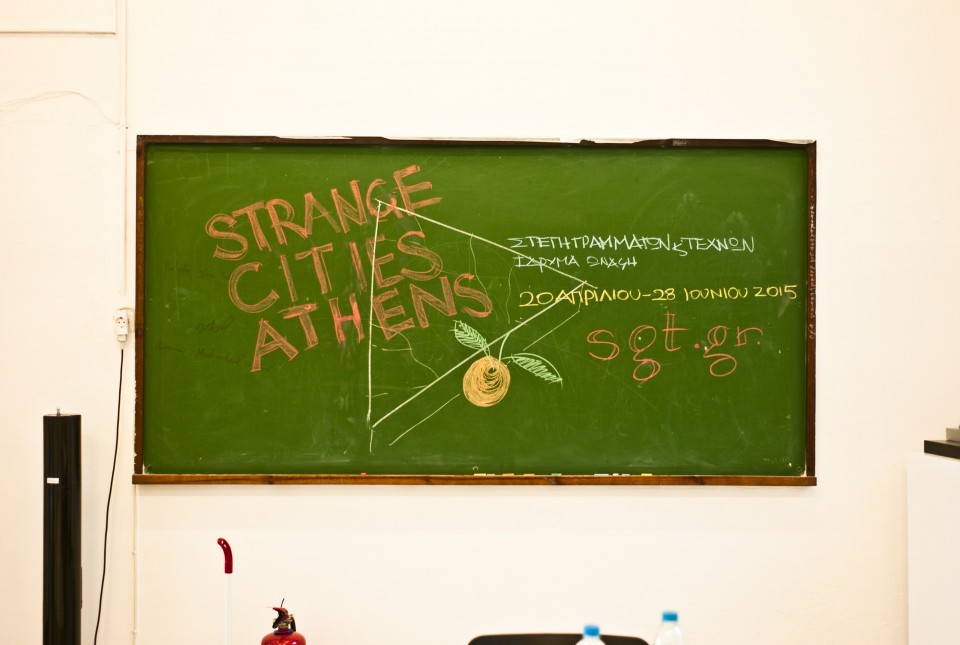 STRANGE
CITIES
ATHENS
ΣΤΕΓΗ ΓΡΑΜΜΑΤΩΝ & ΤΕΧΝΩΝ
ΙΔΡΥΜΑ ΩΝΑΣΗ
20 ΑΠΡΙΛΙΟΥ-28 ΙΟΥΝΙΟΥ 2015
sgt.gr